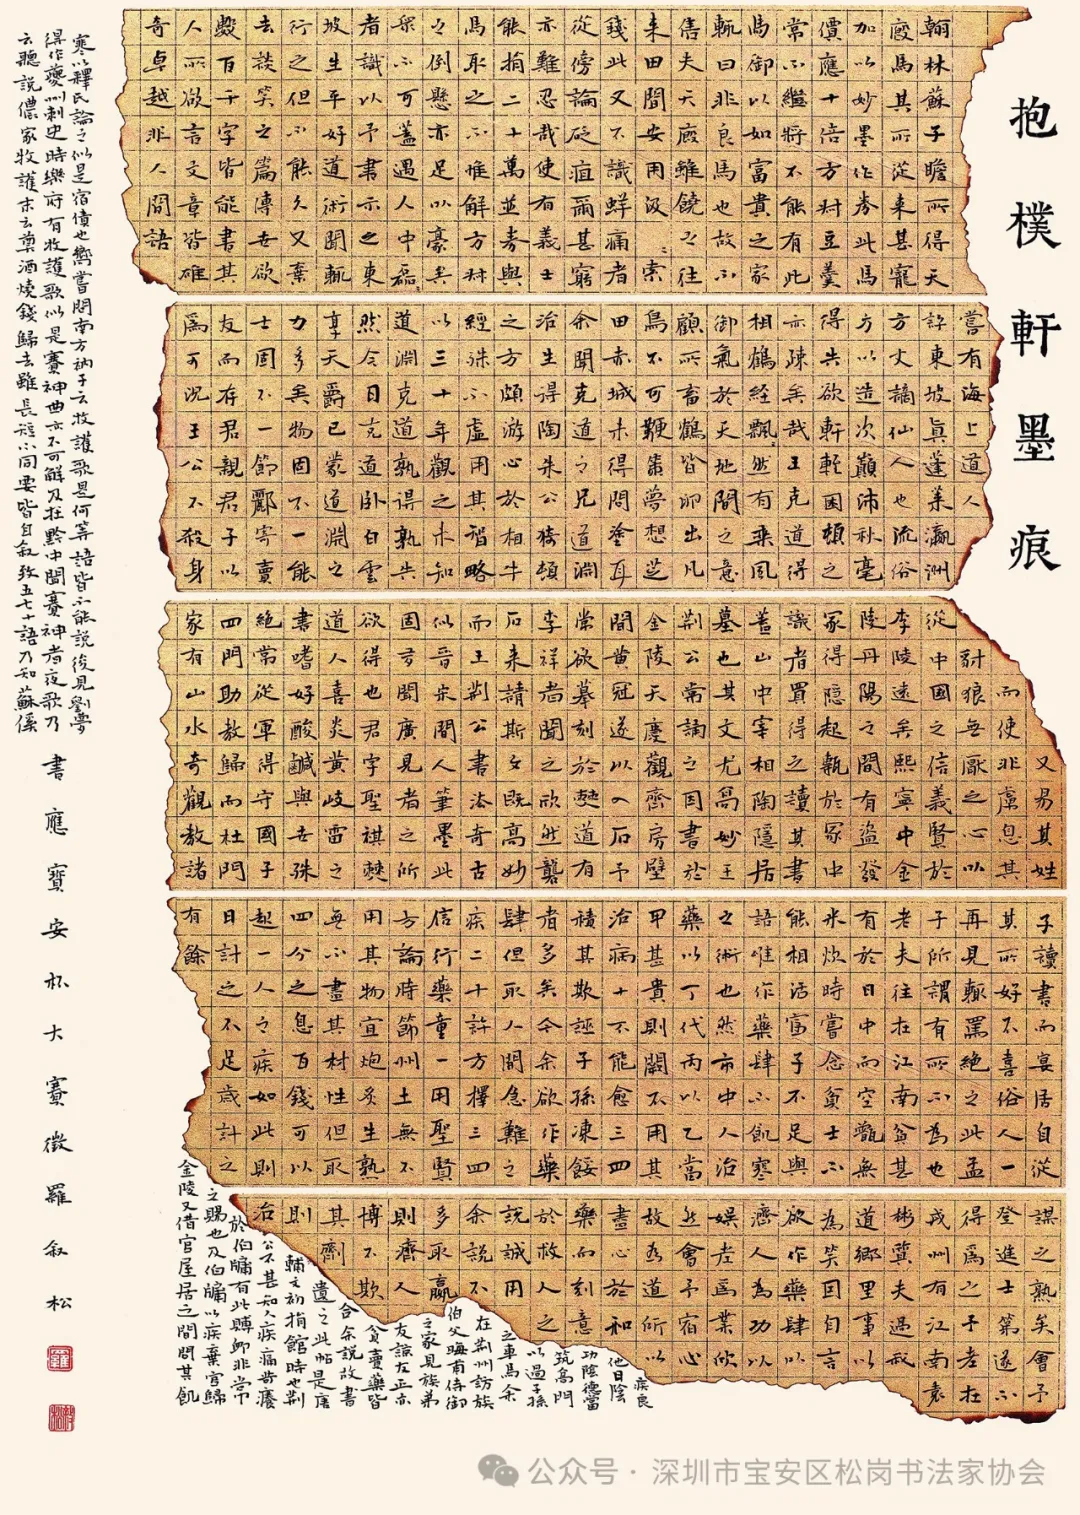 抱樸軒墨痕
翰林蘇子瞻所得天
廄馬其所從来甚寵
加以妙墨作券此馬
價應十倍方叔豆羹
常不繼將不能有此
馬御以如富貴之家
輒曰非良馬也故不
售夫天廄雖饒之往
来田間安用汲汲索
錢此又不識鮮痛者
從傍論砭疽爾甚窮
亦難忍哉使有義士
能捐二十萬並券與
馬取之不惟解方叔
之倒懸亦足以豪矣
衆不可蓋遇人中磊
者識以予書示之東
坡生平好道術聞輒
行之但不能久又棄
去談笑之篇傳世欲
數百千字皆能書其
人所欲言文章皆雄
奇卓越非人間語
嘗有海上道人
評東坡真蓬莱瀛洲
方丈謫仙人也流俗
方以造次顛沛秋毫
得失欲軒輊困頓之
亦疎矣哉王克道得
相鶴經飄然有乘風
御氣於天地間之意
顧所畜鶴皆卵出凡
鳥不可鞭策夢想芝
田赤城未得問塗耳
余聞克道之兄道淵
治生得陶朱公猗頓
之方頗游心於相牛
經殊不虛用其智略
以三十年觀之未知
道淵克道孰得孰失
然今日克道卧白雲
享天爵已蒙道淵之
力多矣物固不一能
士固不一節酈寄賣
友而存君親君子以
爲可況王公不殺身
又易其姓
而使非虛息其
豺狼無厭之心以
從中國之信義賢於
李陵遠矣熙寧中金
陵丹陽之間有盜發
冢得隱起甎於冢中
識者買得之讀其書
蓋山中宰相陶隱居
墓也其文尤高妙王
荆公常誦之因書於
金陵天慶觀齋房壁
間黄冠遂以入石予
常欲摹刻於僰道有
李祥者聞之欣然礱
石来請斯文既高妙
而王荆公書法奇古
似晉宋間人筆墨此
固多聞廣見者之所
欲得也君字聖祺僰
道人喜炎黄岐雷之
書嗜好酸鹹與世殊
絕常從軍得守國子
四門助教歸而杜門
家有山水奇觀教諸
子讀書而宴居自從
其所好不喜俗人一
再見輒罵絕之此孟
子所謂有所不為也
老夫往在江南貧甚
有於日中而空甑無
米炊時嘗念貧士不
能相活富子不足與
語唯作藥肆不飢寒
之術也然市中人治
藥以丁代丙以乙當
甲甚貴則闕不用其
治病十不能愈三四
積其欺誣子孫凍餒
者多矣今余欲作藥
肆但取人間急難之
疾二十許方擇三四
信行藥童一用聖賢
方論時節州土無不
用其物宜炮炙生熟
無不盡其材性但取
四分之息百錢可以
起一人之疾如此則
日計之不足歲計之
有餘
謀之熟矣會予
登進士第遂不
得爲之子老在
戎州有江南袁
彬冀夫過寂
道鄉里事以
為笑因自言
欲作藥肆以
濟人為功以
娱老為業欣
然會予宿心
故為道所以
盡心於和
藥而刻意
於救人之
説誠用
余説不
多取贏
則齊人
博不欺
其劑
則
治
疾良
他日陰
功陰德當
筑高門
以過子孫
之車馬余
在荆州訪族
伯父晦甫侍御
之家見族弟
友諒友正亦
貧賣藥皆
合余説故書
遺之此帖是唐
輔文初捐館時也荆
公不甚知人疾痛苛癢
於伯牖有此賻卹非常
之賜也及伯牖以疾棄官歸
金陵又借官屋居之間問其飢
寒以釋氏論之似是宿債也嚮嘗問南方衲子云牧護歌是何等語皆不能説後見劉夢
得作夔州刺史時樂府有牧護歌似是賽神曲亦不可解及在黔中聞賽神者夜歌乃
云聽説儂家牧護末云奠酒燒錢歸去雖長短不同要皆自叙致五七十語乃知蘇傒
書應寶安杯大賽徵羅叙松
公众号·深圳市宝安区松岗书法家协会